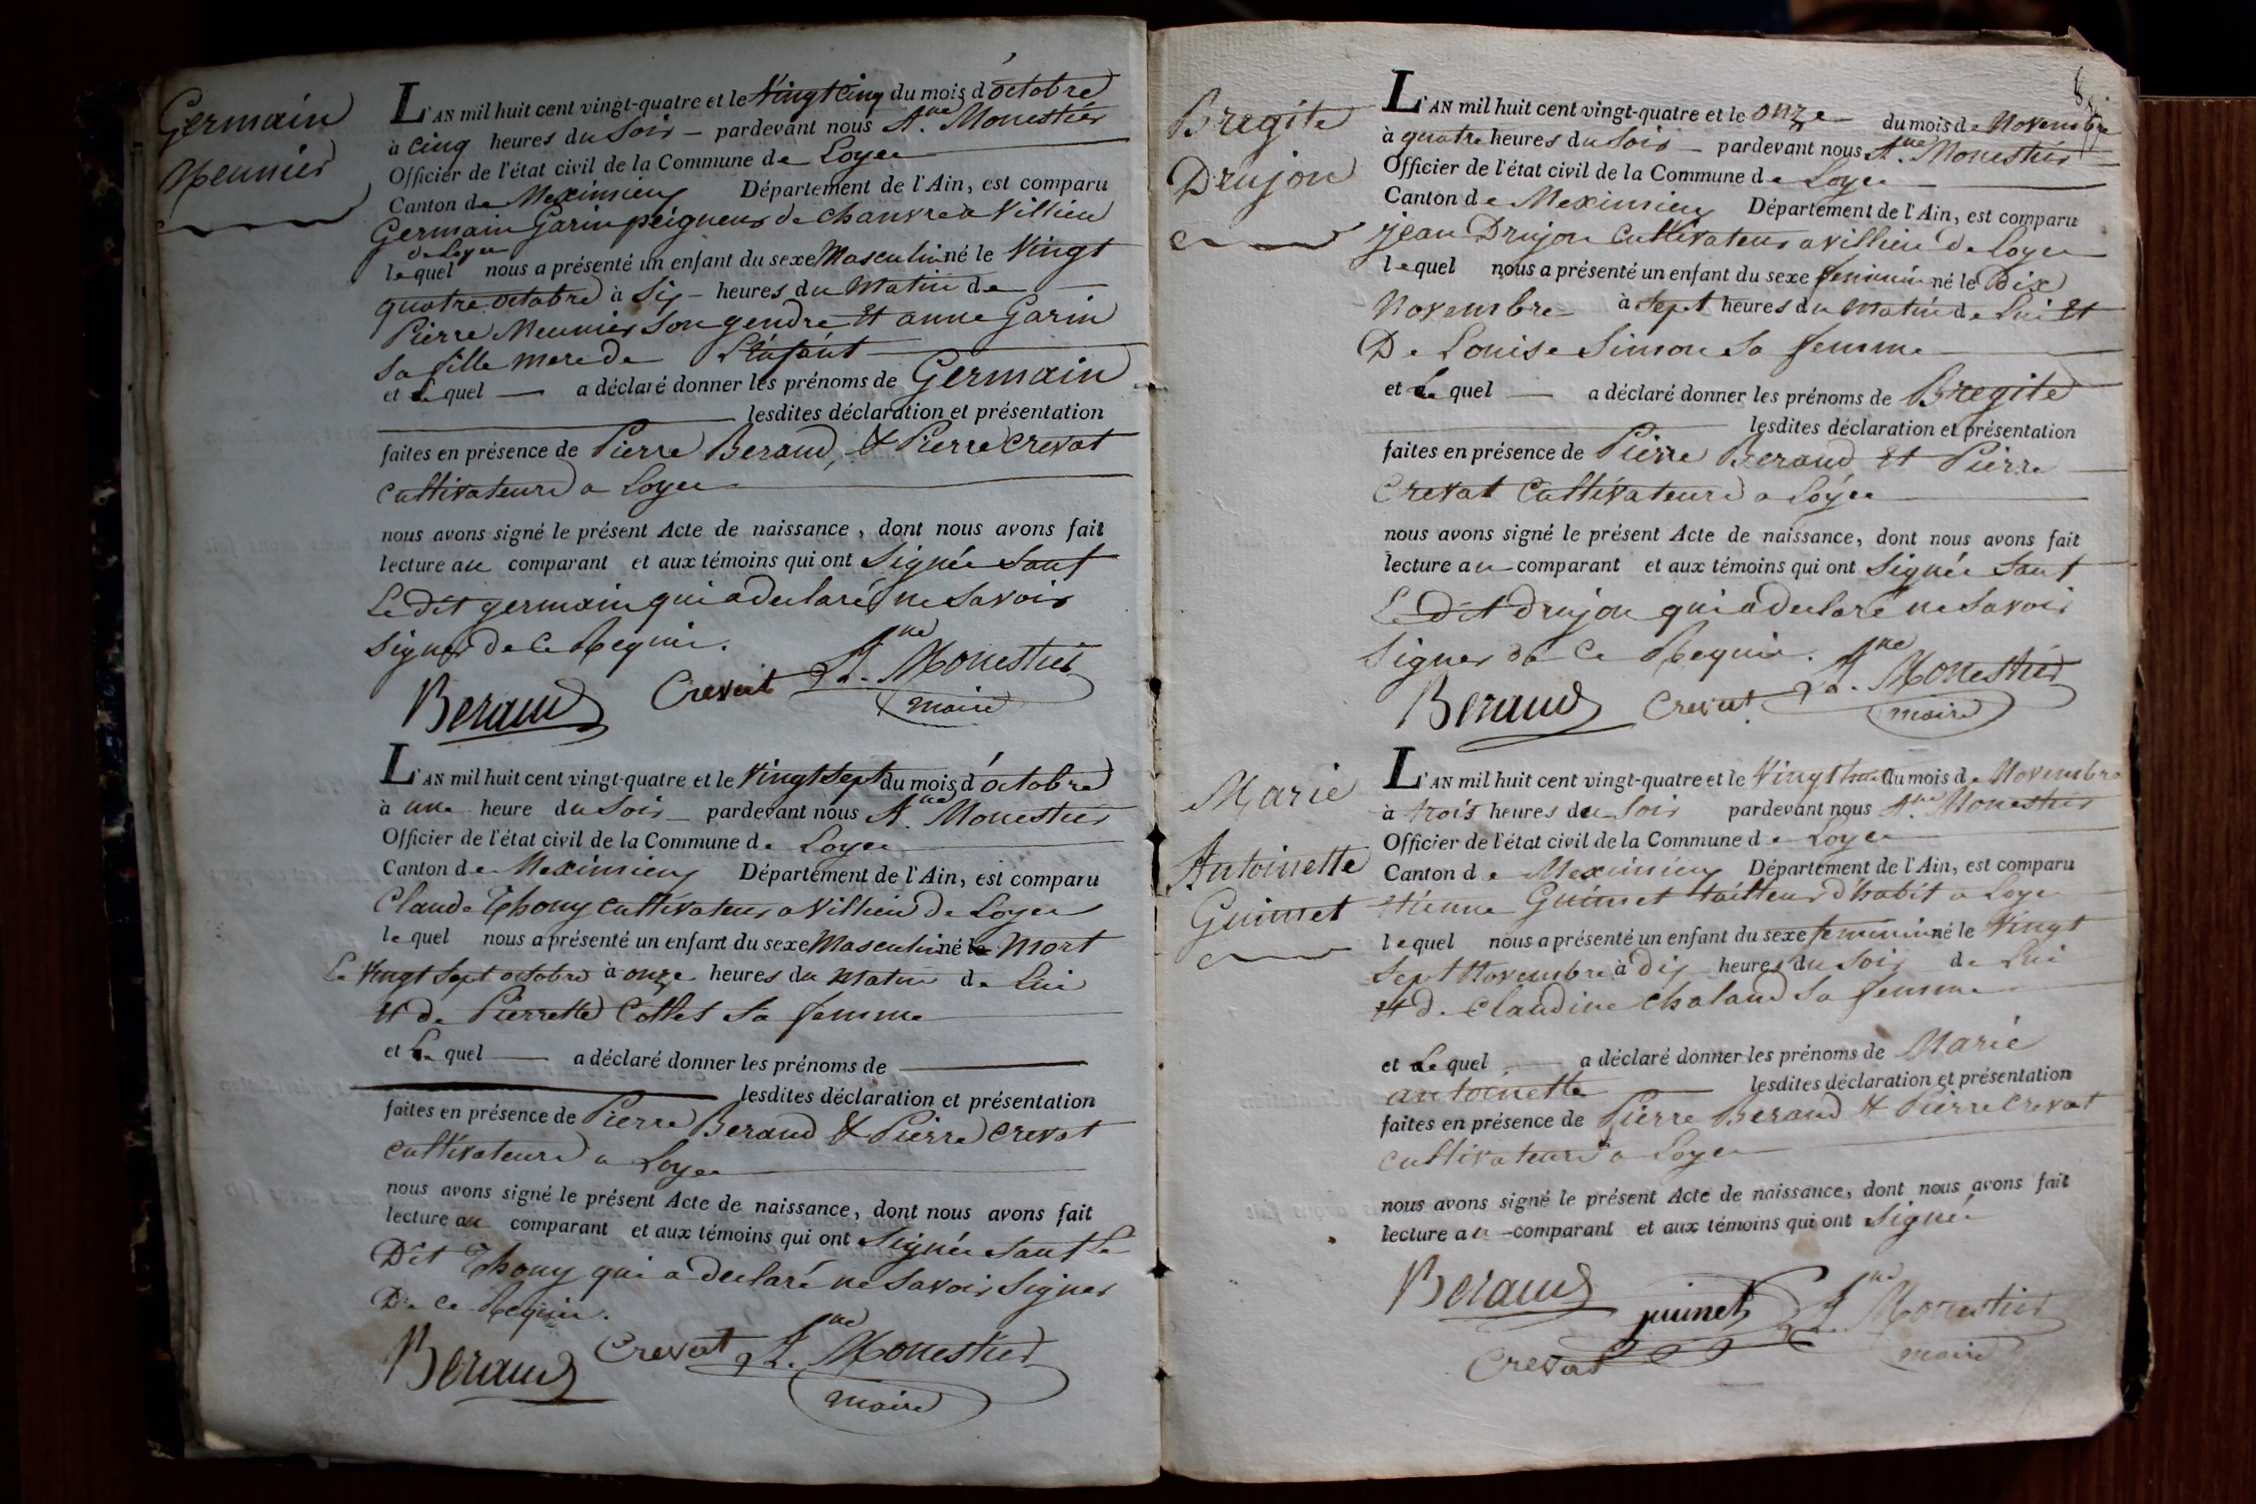 Germain
Meunier
L'AN mil huit cent vingt-quatre et le Vingt cinq du mois d'octobre
à cinq heures du Soir — pardevant nous A.ne Monestier
Officier de l'état civil de la Commune de Loyer
Canton de Meximieu Département de l'Ain, est comparu
Germain Garin peigneur de chanvre a Villieu
de Loyer
lequel nous a présenté un enfant du sexe Masculin né le Vingt
quatre octobre à Six — heures du Matin de —
Pierre Meunier Son gendre Et anne Garin
Sa fille mere de L'enfant
et Le quel — a déclaré donner les prénoms de Germain
lesdites déclaration et présentation
faites en présence de Pierre Beraud, & Pierre Crevat
Cultivateurs a Loyer
nous avons signé le présent Acte de naissance, dont nous avons fait
lecture au comparant et aux témoins qui ont Signée Sauf
Le dit germain qui a declaré ne Savoir
Signer de Ce Requis.
Beraud Crevat A.ne Monestier
maire
L'AN mil huit cent vingt-quatre et le Vingt Sept du mois d'octobre
à une heure du Soir — pardevant nous A.ne Monestier
Officier de l'état civil de la Commune de Loyer
Canton de Meximieu Département de l'Ain, est comparu
Claude Thony cultivateur a Villieu de Loyer
lequel nous a présenté un enfant du sexe Masculin né le Mort
Le Vingt Sept octobre à onze heures du Matin de Lui
Et de Pierrette Collet Sa femme
et Le quel — a déclaré donner les prénoms de —
lesdites déclaration et présentation
faites en présence de Pierre Beraud & Pierre Crevat
Cultivateurs a Loyer
nous avons signé le présent Acte de naissance, dont nous avons fait
lecture au comparant et aux témoins qui ont Signée Sauf Le
Dit Thony qui a declaré ne Savoir Signer
De Ce Requis.
Beraud Crevat A.ne Monestier
maire
Bregite
Drujon
L'AN mil huit cent vingt-quatre et le onze du mois de Novembre
à quatre heures du Soir — pardevant nous A.ne Monestier
Officier de l'état civil de la Commune de Loyer
Canton de Meximieu Département de l'Ain, est comparu
jean Drujon Cultivateur a Villieu de Loyer
lequel nous a présenté un enfant du sexe feminin né le Dix
Novembre à Sept heures du Matin de Lui Et
De Louise Simon Sa femme
et Le quel — a déclaré donner les prénoms de Bregite
lesdites déclaration et présentation
faites en présence de Pierre Beraud Et Pierre
Crevat Cultivateurs a Loyer
nous avons signé le présent Acte de naissance, dont nous avons fait
lecture au comparant et aux témoins qui ont Signée Sauf
Le dit Drujon qui a declaré ne Savoir
Signer de Ce Requis.
Beraud Crevat A.ne Monestier
maire
Marie
Antoinette
Guimet
L'AN mil huit cent vingt-quatre et le Vingt huit du mois de Novembre
à trois heures du Soir pardevant nous A.ne Monestier
Officier de l'état civil de la Commune de Loyer
Canton de Meximieu Département de l'Ain, est comparu
Etienne Guimet tailleur d'habit a Loyer
lequel nous a présenté un enfant du sexe feminin né le Vingt
Sept Novembre à dix heures du Soir de Lui
Et de Claudine Chaland Sa femme
et Le quel — a déclaré donner les prénoms de Marie
antoinette lesdites déclaration et présentation
faites en présence de Pierre Beraud & Pierre Crevat
Cultivateurs a Loyer
nous avons signé le présent Acte de naissance, dont nous avons fait
lecture au comparant et aux témoins qui ont Signée
Beraud guimet A.ne Monestier
Crevat maire